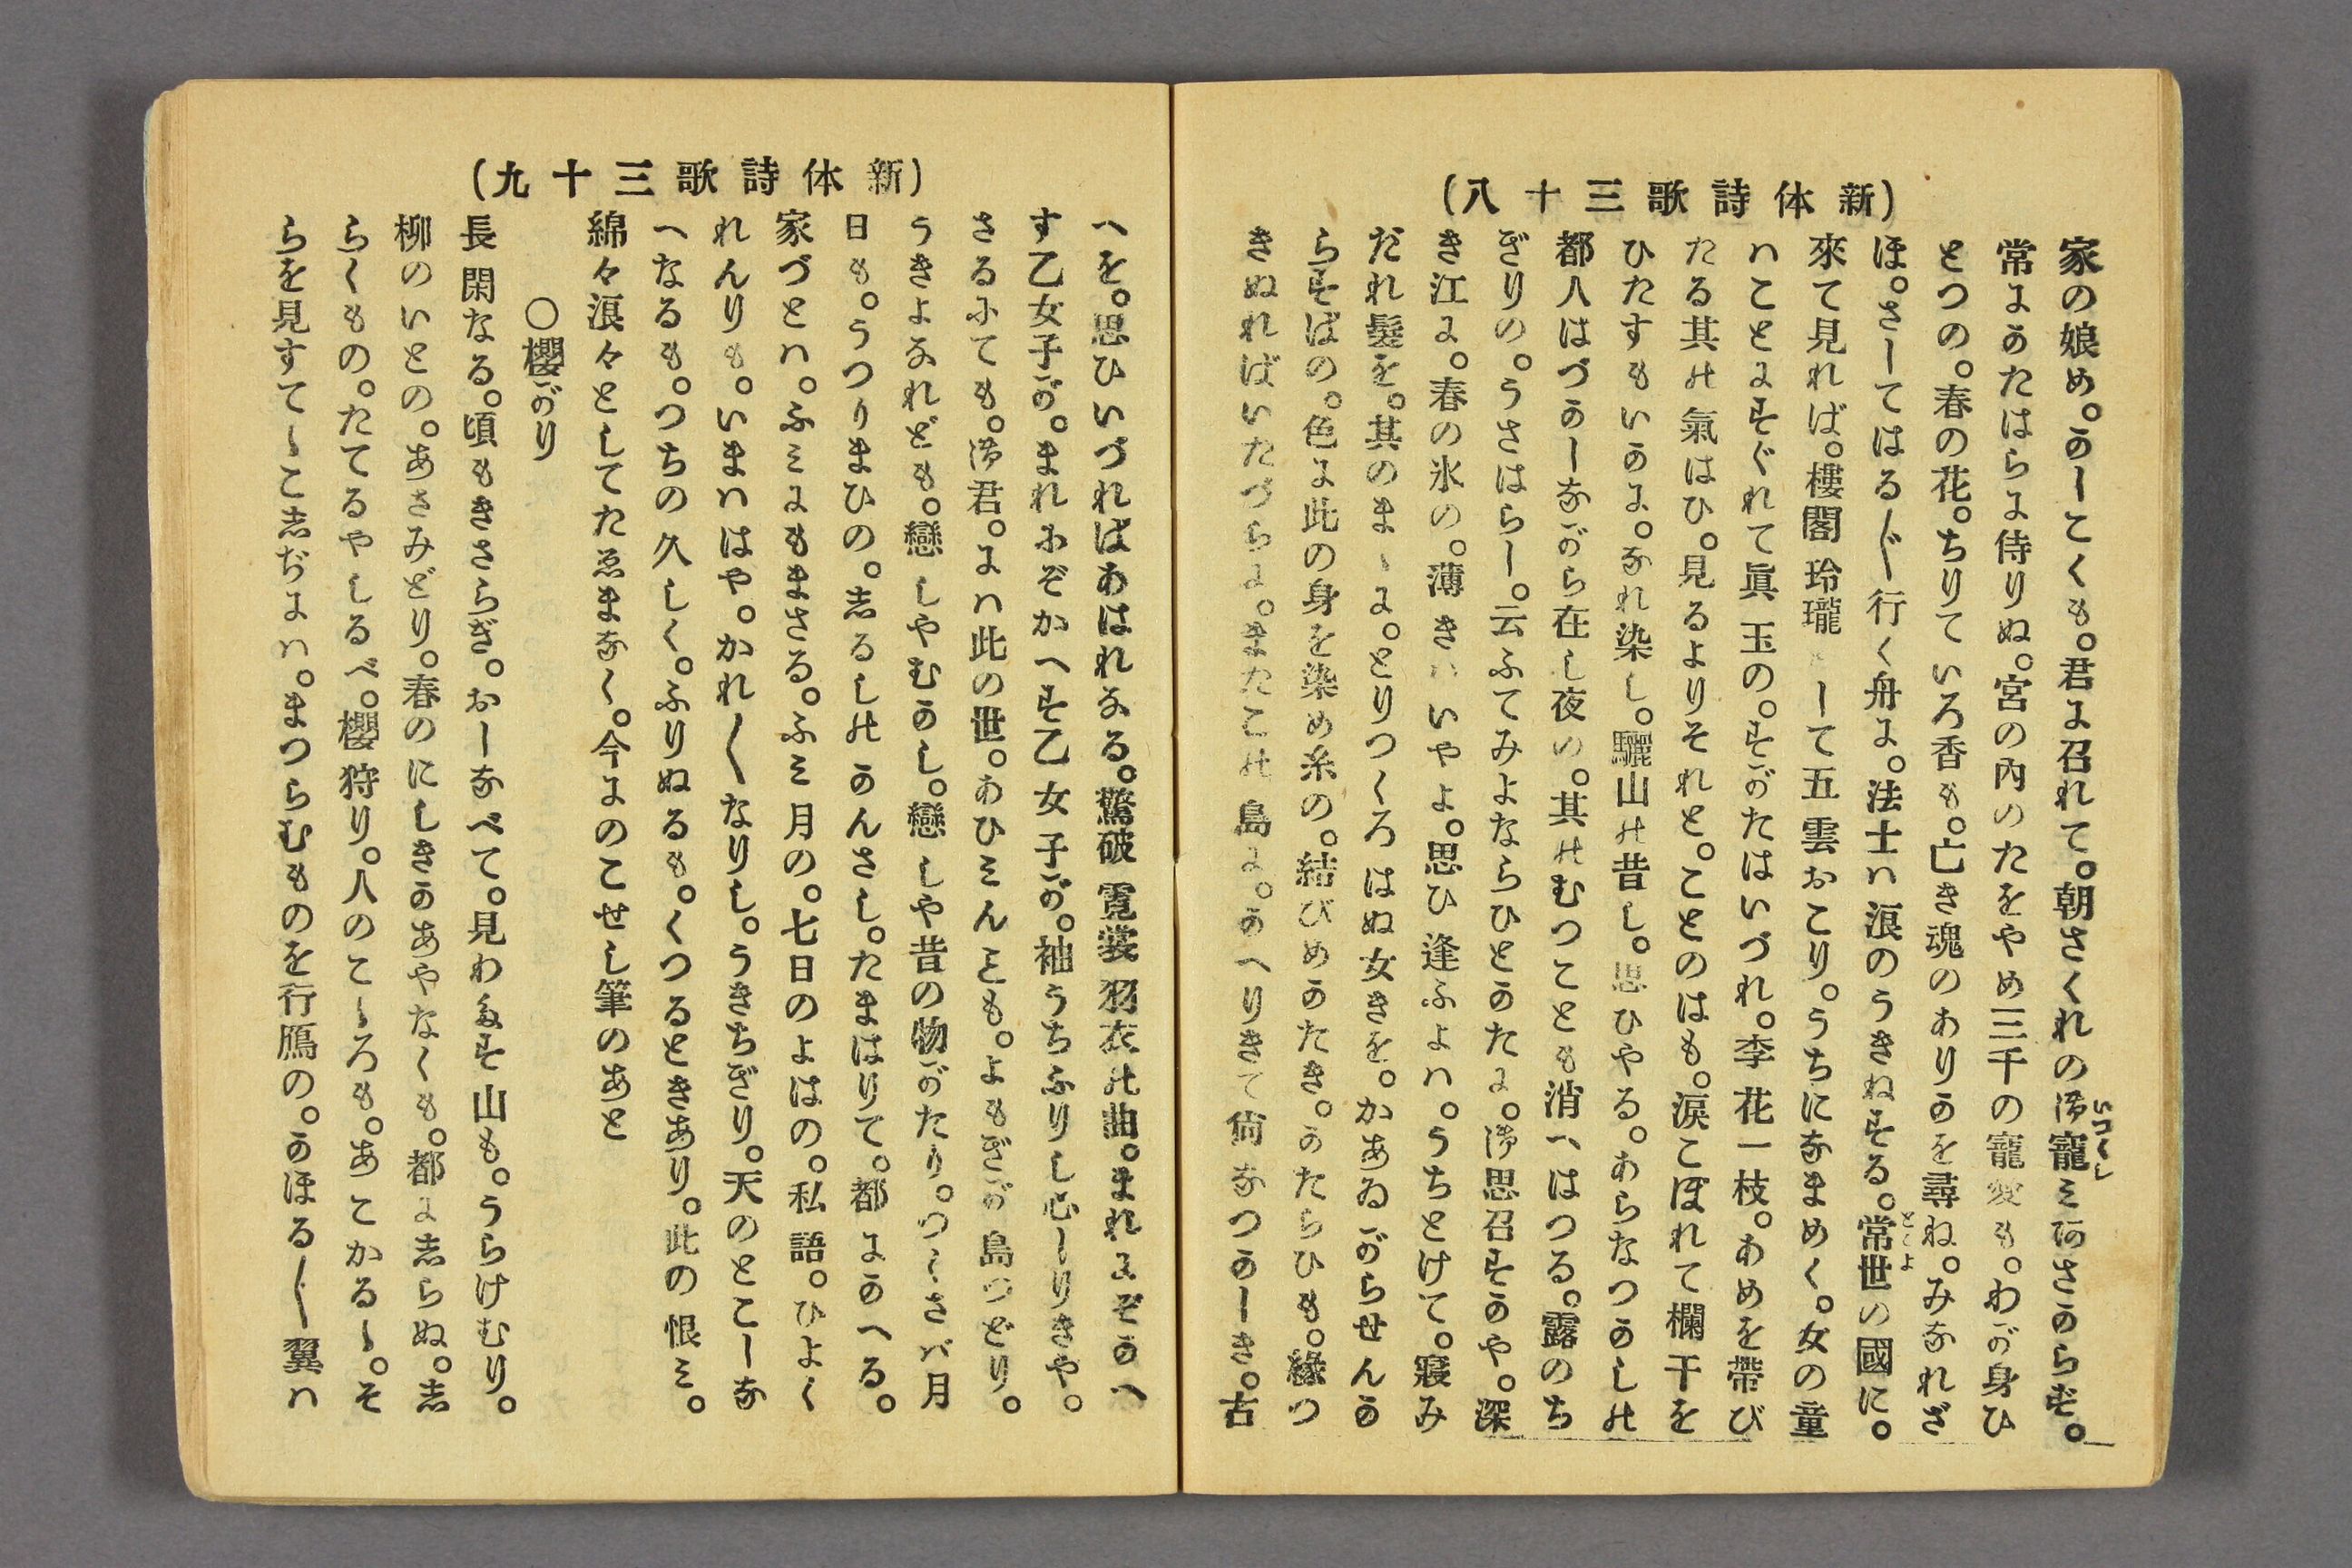 (新体詩歌三十八)
家の娘め。かしこくも。君に召れて。朝さくれの御寵ミ河さからず。
いつくし
常にかたはらに侍りぬ。宮の內のたをやめ三千の寵愛も。わが身ひ
とつの。春の花。ちりていろ香も。亡き魂のありかを尋ね。みなれざ
ほ。さしてはる〴〵行く舟に。法士ハ浪のうきねする。常世の國に。
とこよ
來て見れば。樓閣玲瓏として五雲おこり。うちになまめく。女の童
ハことにすぐれて眞玉の。すがたはいづれ。李花一枝。あめを帶び
たる其の氣はひ。見るよりそれと。ことのはも。淚こぼれて欄干を
ひたすもいかに。なれ染し。驪山の昔し。思ひやる。あらなつかしの
都人はづかしながら在し夜の。其のむつことも消へはつる。露のち
ぎりの。うさはらし。云ふてみよならひとかたに。御思召すかや。深
き江に。春の氷の。薄きハいやよ。思ひ逢ふよハ。うちとけて。寢み
だれ髮を。其のまゝに。とりつくろはぬ女きを。かあゐがらせんか
らすばの。色に此の身を染め糸の。結びめかたき。かたらひも。緣つ
きぬればいたづらに。またこの島に。かへりきて倘なつかしき。古
(新体詩歌三十九)
へを。思ひいづればあはれなる。驚破霓裳羽衣の曲。まれにぞかへ
す乙女子が。まれにぞかへす乙女子が。袖うちふりし心しりきや。
さるにても。御君。にハ此の世。あひミんとも。よもぎが島つどり。
うきよなれども。戀しやむかし。戀しや昔の物がたり。つくさバ月
日も。うつりまひの。志るしのかんさし。たまはりて。都にかへる。
家づとハ。ふミにもまさる。ふミ月の。七日のよはの。私語。ひよく
れんりも。いまハはや。かれ〴〵なりし。うきちぎり。天のとこしな
へなるも。つちの久しく。ふりぬるも。くつるときあり。此の恨ミ。
綿々浪々としてたゑまなく。今にのこせし筆のあと
〇櫻がり
長閑なる。頃もきさらぎ。おしなべて。見わたす山も。うらけむり。
柳のいとの。あさみどり。春のにしきのあやなくも。都に志らぬ。志
らくもの。たてるやしるべ。櫻狩り。人のこゝろも。あこかるゝ。そ
らを見すてゝこ志ぢにハ。まつらむものを行鴈の。かほる〴〵翼ハ